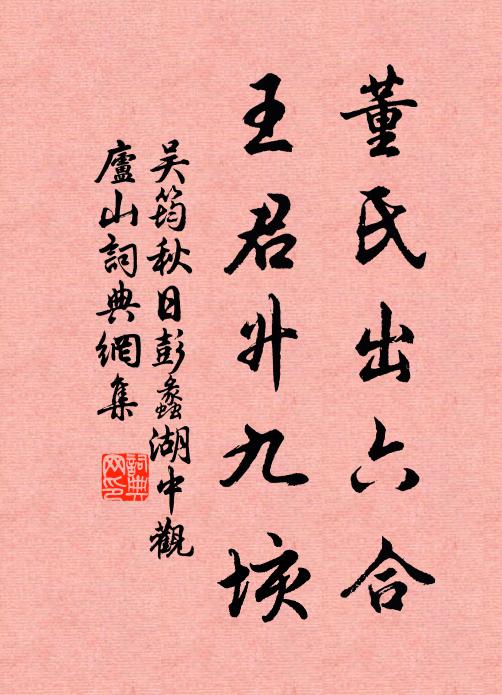 董氏出六合
王君升九垓
吴筠秋日彭蠡湖中觀
廬山詞典網集
詞典
网印